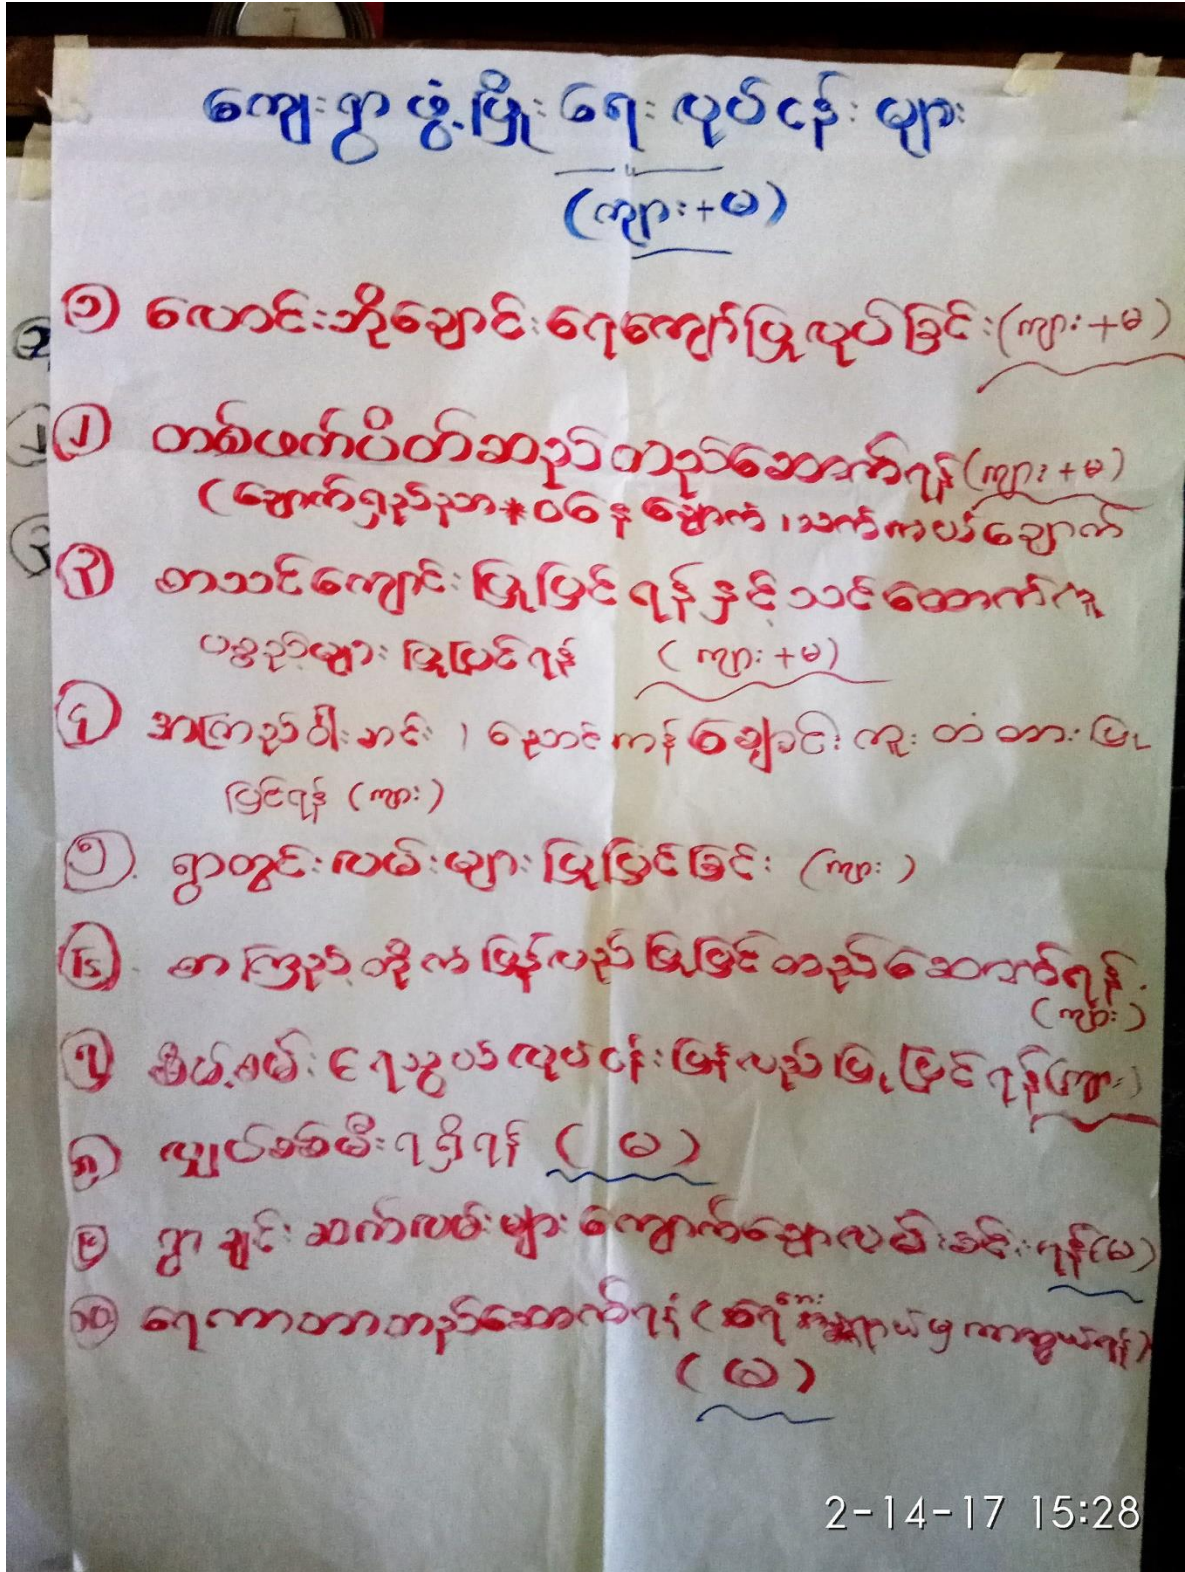 ကျေးရွာ ဖွံ့ဖြိုး ရေး လုပ်ငန်း များ
(ကျား+မ)
၁ လောင်းဘိုချောင်းရေကျော်ပြုလုပ်ခြင်း(ကျား+မ)
၂ တစ်ဖက်ပိတ်ဆည်တည်ဆောက်ရန်(ကျား+မ)
၃ စာသင်ကျောင်းပြုပြင်ရန်နှင့်သင်ထောက်ကူ
ပစ္စည်းများပြုပြင်ရန် (ကျား+မ)
၄ ချောင်းကူးတံတားပြု
ပြင်ရန် (ကျား)
၅ ရွာတွင်းလမ်းများပြုပြင်ခြင်း (ကျား)
၆ စာကြည့်တိုက်ပြန်လည်ပြုပြင်တည်ဆောက်ရန်.
(ကျား)
၇ စိမ့်စမ်းရေသွယ်လုပ်ငန်းပြန်လည်ပြုပြင်ရန်(ကျား)
၈ လျှပ်စစ်မီးရရှိရန် (မ)
၉ ရွာချင်းဆက်လမ်းများကျောက်ချောလမ်းခင်းရန်(မ)
၁၀ ရေကာတာတည်ဆောက်ရန်
(မ)
2-14-17 15:28